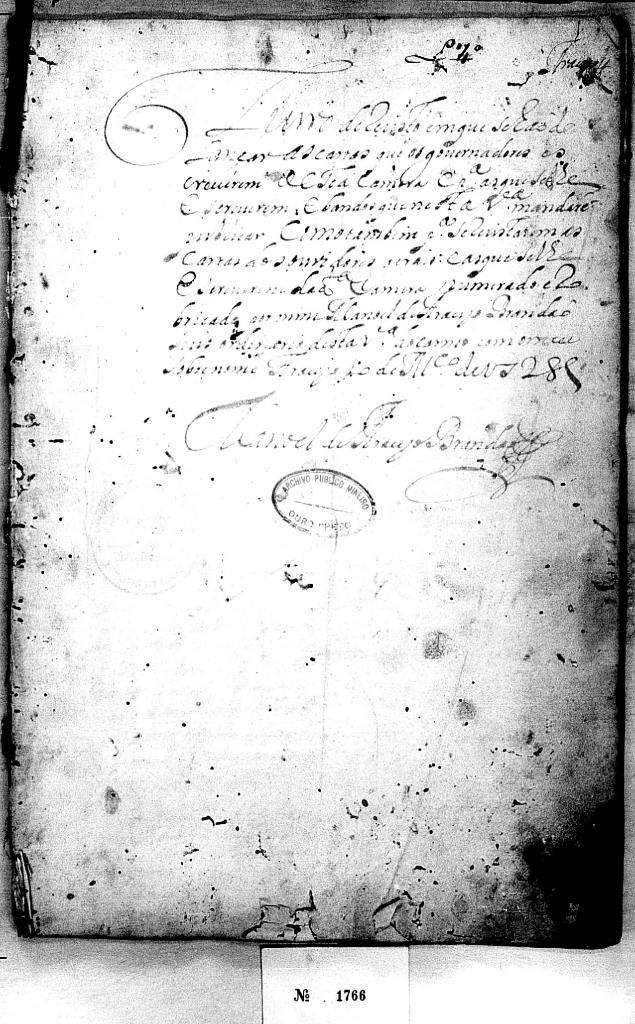 Livro de Registo em que se hão de
Lançar as cartas que os governadores es
creverem a Esta Camera e as que se lhe
Escreverem, E bandos que nesta Vª mandarẽ
publicar Como tambem pª se Registarem as
Cartas dos ouvidores geraes e as que se lhe
Escreverem da dª Camera numerado e Ru
bricado por mim Manoel de Araujo Brandaõ
Juis ordinario desta Vª
sobrenome Araujo de Mço de 1728
Manoel de Araujo Brandaõ
ARCHIVO PUBLICO MINEIRO
OURO PRETO
Nº 1766